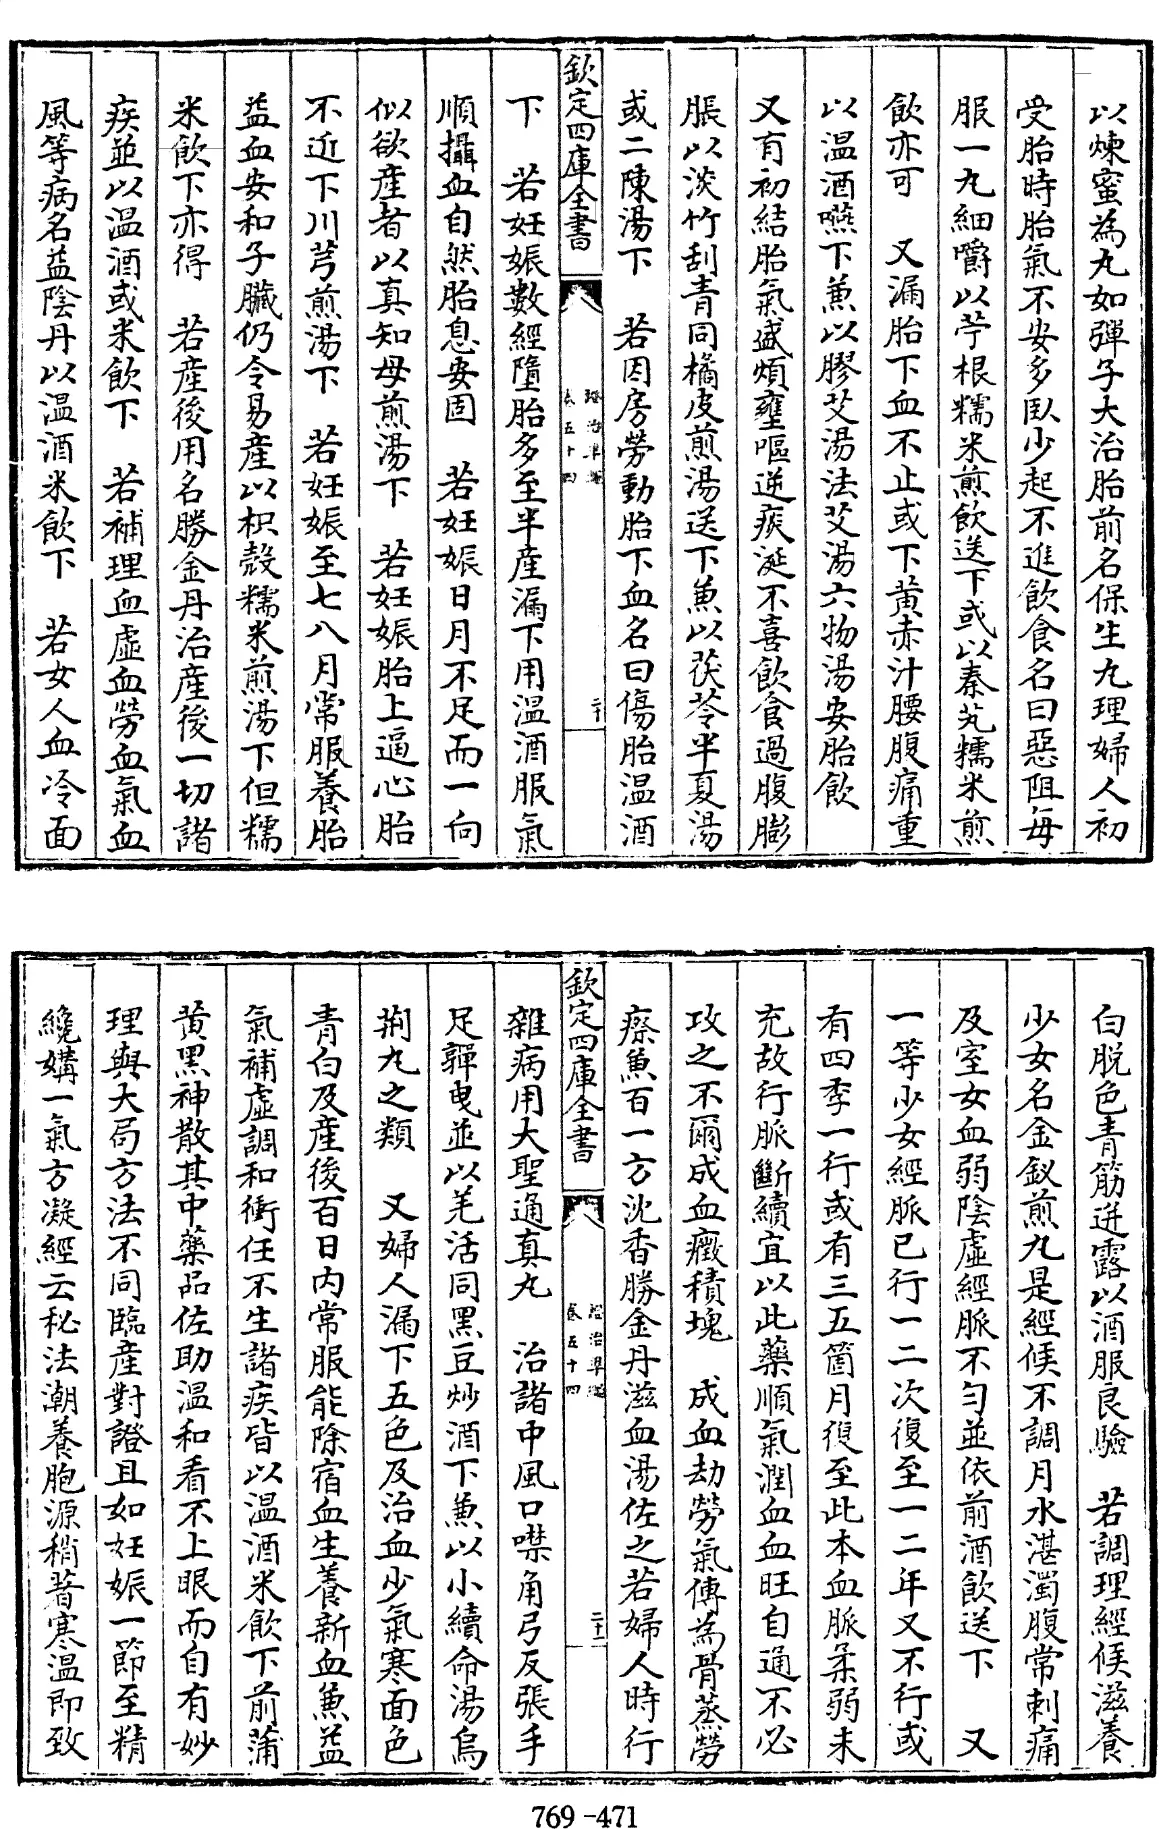 以煉蜜為丸如彈子大治胎前名保生丸理婦人初
受胎時胎氣不安多臥少起不進飲食名曰惡阻每
服一丸細嚼以苧根糯米煎飲送下或以秦艽糯米煎
飲亦可　又漏胎下血不止或下黃赤汁腰腹痛重
以温酒嚥下兼以膠艾湯法艾湯六物湯安胎飲
又有初結胎氣盛煩壅嘔逆痰涎不喜飲食過腹膨
脹以淡竹刮青同橘皮煎湯送下兼以茯苓半夏湯
或二陳湯下　若因房勞動胎下血名曰傷胎温酒
欽定四庫全書
證治準繩
卷五十四
二十
下　若妊娠數經墮胎多至半産漏下用温酒服氣
順攝血自然胎息安固　若妊娠日月不足而一向
似欲産者以真知母煎湯下　若妊娠胎上逼心胎
不近下川芎煎湯下　若妊娠至七八月常服養胎
益血安和子臟仍令易産以枳殼糯米煎湯下但糯
米飲下亦得　若産後用名勝金丹治産後一切諸
疾並以温酒或米飲下　若補理血虛血勞血氣血
風等病名益陰丹以温酒米飲下　若女人血冷面
白脱色青筋迸露以酒服良驗　若調理經候滋養
少女名金釵煎丸是經候不調月水湛濁腹常刺痛
及室女血弱陰虛經脈不勻並依前酒飲送下　又
一等少女經脈已行一二次復至一二年又不行或
有四季一行或有三五箇月復至此本血脈柔弱未
充故行脈斷續宜以此藥順氣潤血血旺自通不必
攻之不爾成血癥積塊　成血劫勞氣傳為骨蒸勞
瘵兼百一方沈香勝金丹滋血湯佐之若婦人時行
欽定四庫全書
證治準繩
卷五十四
二十一
雜病用大聖通真丸　治諸中風口噤角弓反張手
足嚲曳並以羌活同黑豆炒酒下兼以小續命湯烏
荆丸之類　又婦人漏下五色及治血少氣寒面色
青白及産後百日内常服能除宿血生養新血兼益
氣補虛調和衝任不生諸疾皆以温酒米飲下前蒲
黄黑神散其中藥品佐助温和看不上眼而自有妙
理與大局方法不同臨産對證且如妊娠一節至精
纔媾一氣方凝經云秘法潮養胞源稍著寒温即致
769-471